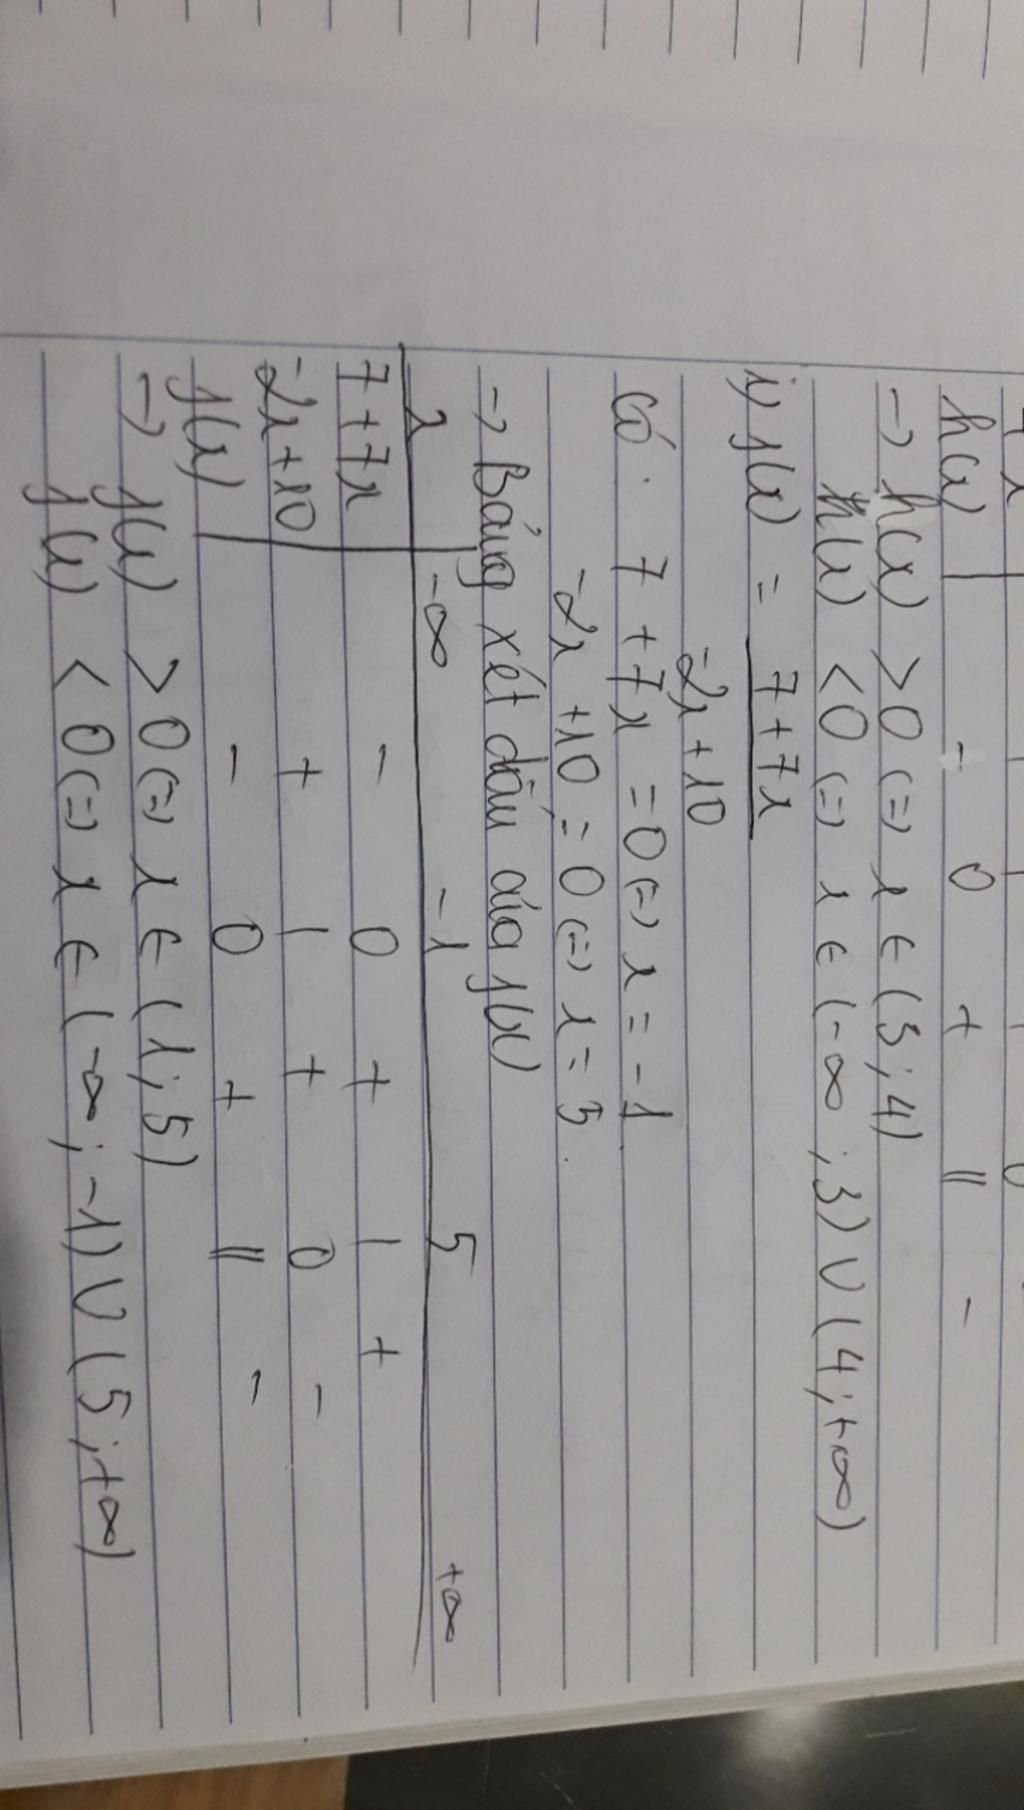 h(x) - 0 + || -
→ h(x) > 0 (=) x ∈ (3 ; 4)
h(x) < 0 (=) x ∈ (-∞ ; 3) ∪ (4 ; +∞)
i) j(x) = 7 + 7x
-2x + 10
Có: 7 + 7x = 0 (=) x = -1
-2x + 10 = 0 (=) x = 5.
→ Bảng xét dấu của j(x)
x -∞ -1 5 +∞
7 + 7x - 0 + | +
-2x + 10 + | + 0 -
j(x) - 0 + || -
→ j(x) > 0 (=) x ∈ (1 ; 5)
j(x) < 0 (=) x ∈ (-∞ ; -1) ∪ (5 ; +∞)